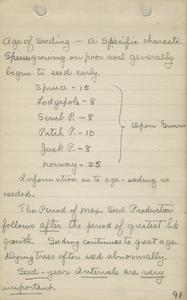 Age of Seeding — A Specific character.
Spruce growing on poor soil generally
begin to seed early.
Spruce - 15
Lodgepole - 8
Scrub P. - 8
Pitch P. - 10
Jack P. - 8
Open Grown
Norway - 25
Information as to age - seeding is
needed.
The Period of max. Seed Production
follows after the period of greatest ht
growth. Seeding continues to great age.
Dying trees often seed abnormally.
Seed - year Intervals are very
important.
91